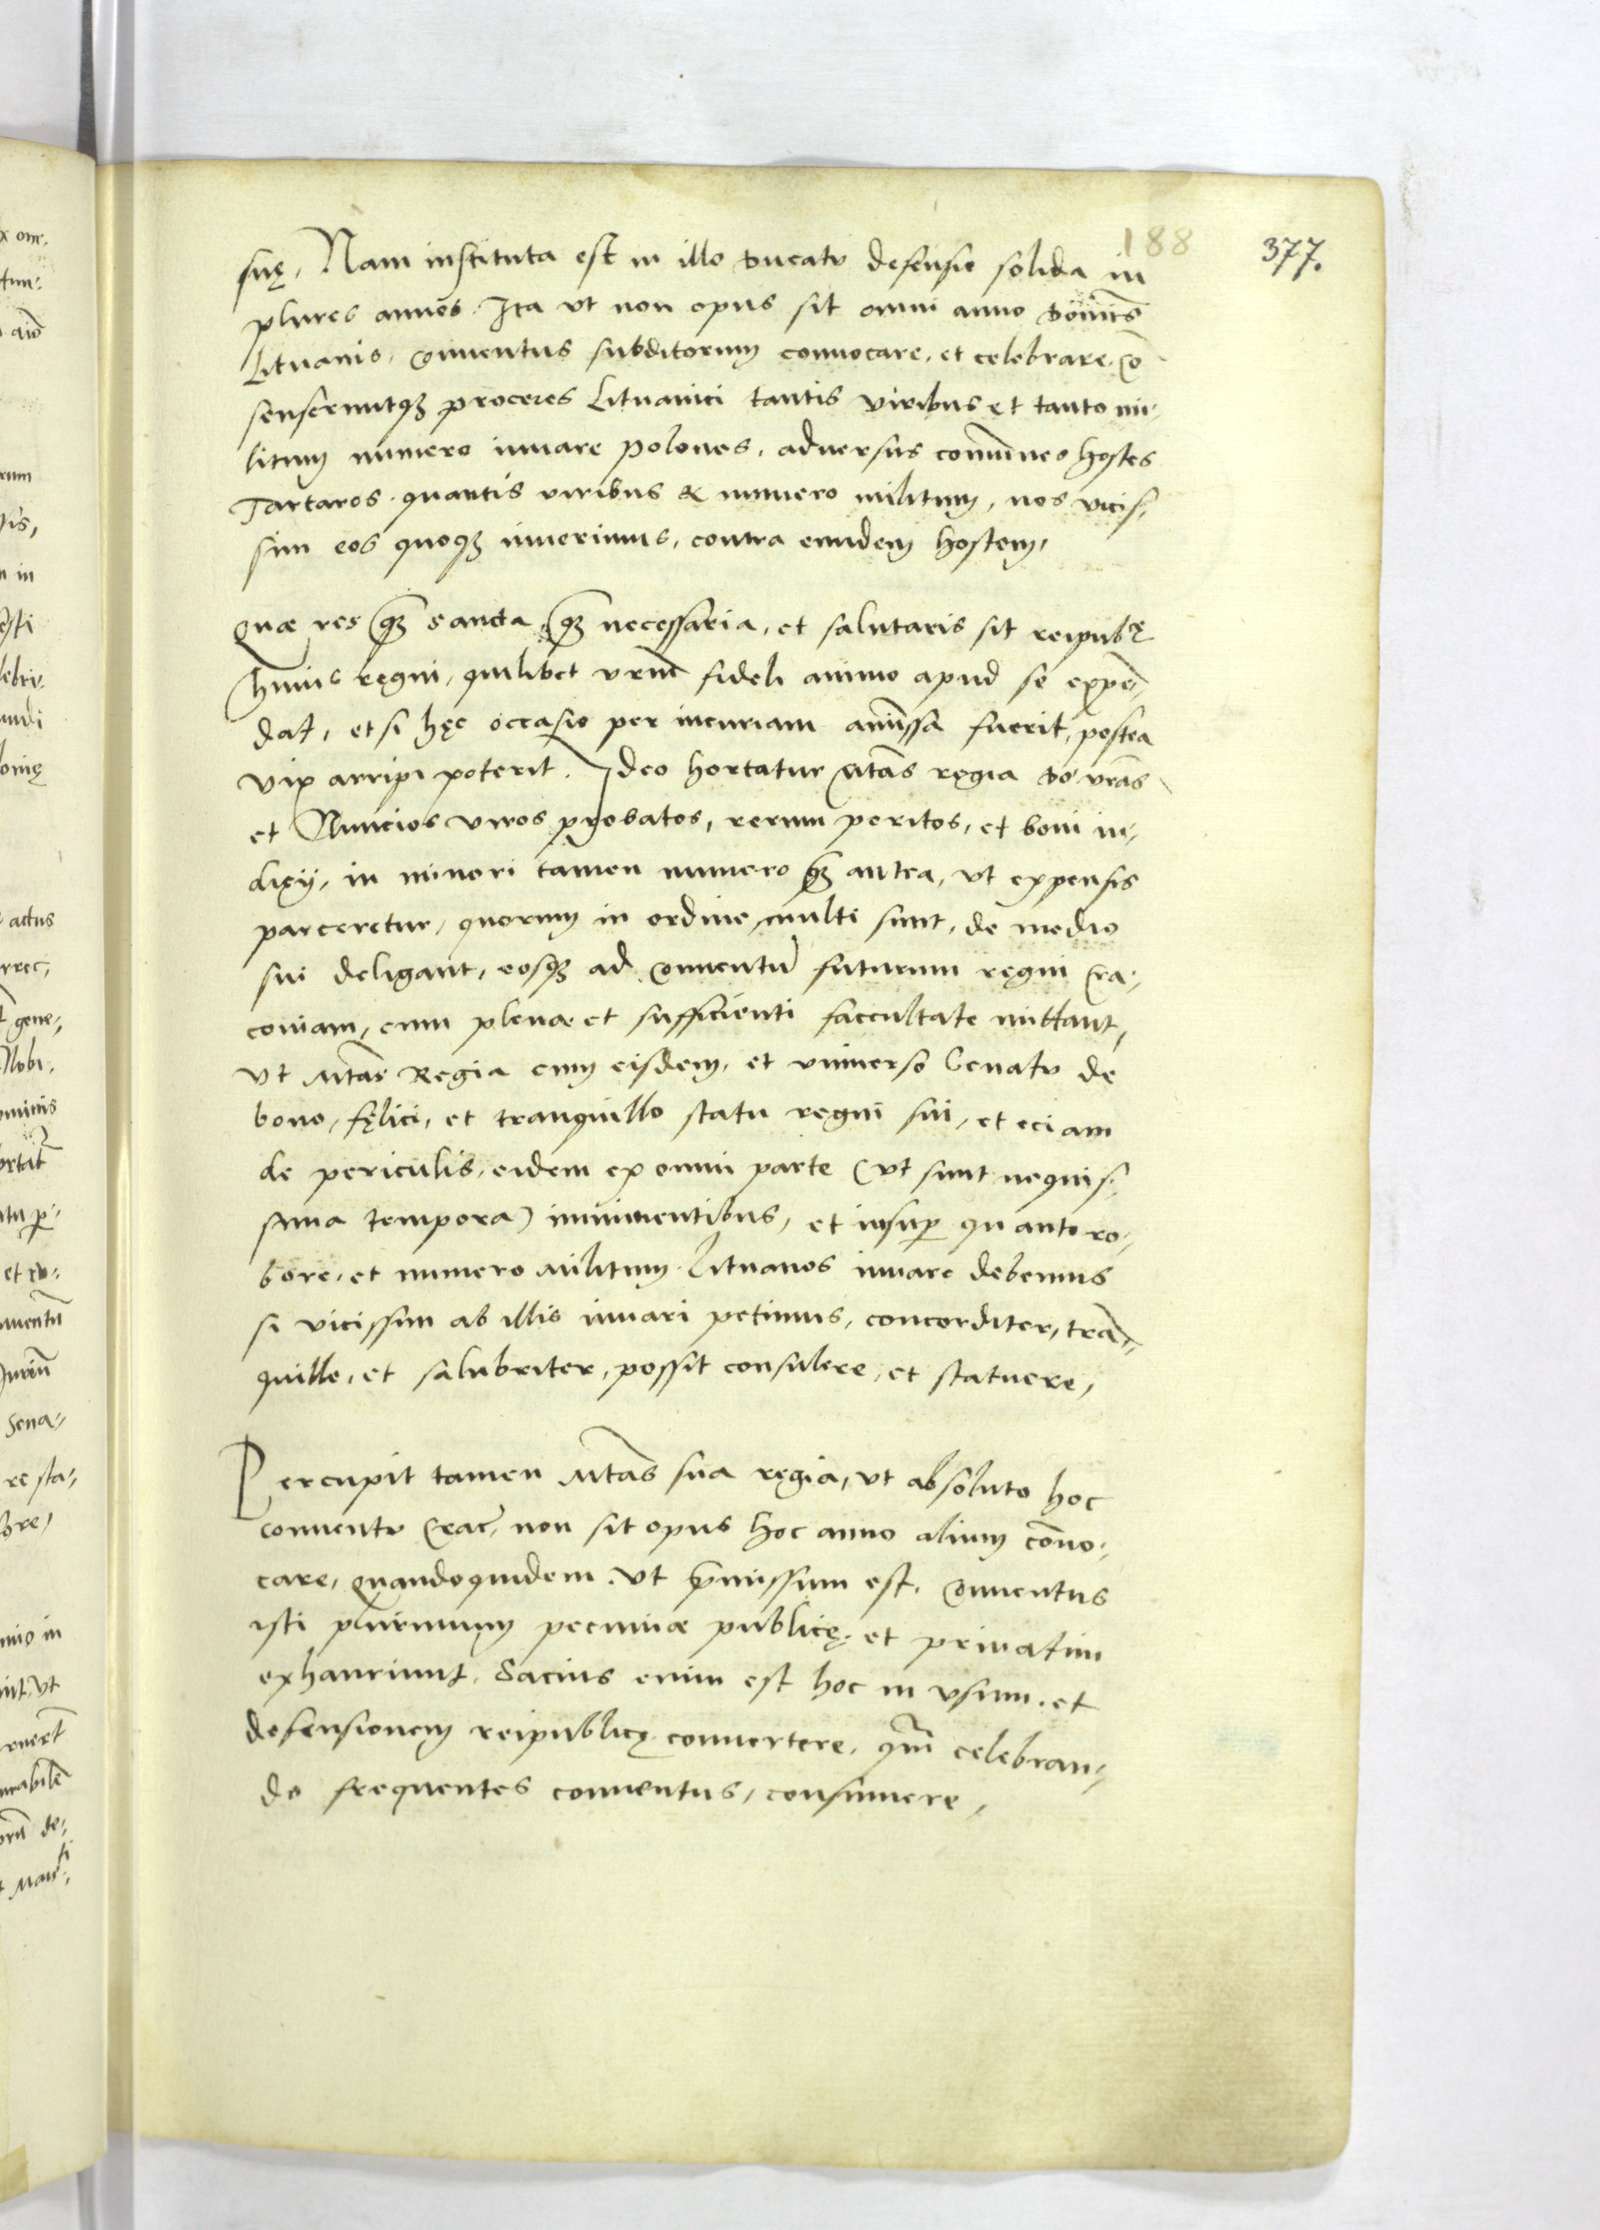 188
377.
suę, Nam instituta est in illo ducatu defensio solida in
plures annos. Ita vt non opus sit omni anno dominis
Lituanis, conuentus subditorum conuocare, et celebrare. cō
senseruntqȝ proceres Lituanici tantis viribus et tanto mi-
litum numero iuuare Polonos, aduersus com̄unes hostes
Tartaros. quantis viribus & numero militum, nos vicis,
sim eos quoqȝ iuuerimus, contra eundem hostem,
Quæ res qȝ sancta, qȝ necessaria, et salutaris sit reipubę
huius regni, quilibet vrm̄ fideli animo apud se expē,
dat, et si hęc occasio per incuriam amissa fuerit, postea
vix arripi poterit. Ideo hortatur Mtās regia do vrās
et Nuncios viros probatos, rerum peritos, et boni iu-
dicij, in minori tamen numero qȝ antea, vt expensis
parceretur, quorum in ordine multi sunt, de medio
sui deligant, eosqȝ ad conuentū futurum regni Cra-
couiam, cum plena et sufficienti faccultate mittant,
vt Mtās Regia cum eisdem, et vniuerso Senatu de
bono, fęlici, et tranquillo statu regni sui, et eciam
de periculis, eidem ex omni parte (vt sunt nequis-
sima tempora) imminentibus, et insup quanto ro-
bore, et numero militum Lituanos iuuare debemus
si vicissim ab illis iuuari petimus, concorditer, trā-
quille, et salubriter, possit consulere, et statuere,
Percupit tamen Mtās sua regia, vt absoluto hoc
conuentu Crac̄, non sit opus hoc anno alium cōuo-
care, quandoquidem. vt p̄missum est, conuentus
isti plurimum pecuniæ publicę, et priuatim
exhauriunt. Sacius enim est hoc in vsum. et
defensionem reipublicę conuertere, qm̄ celebran-
do frequentes conuentus, consumere,